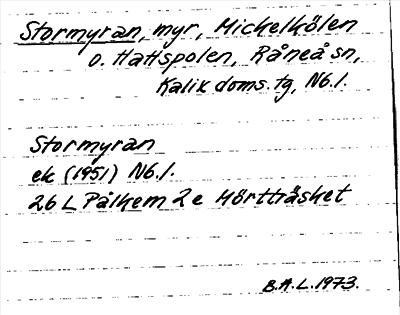 Stormyran, myr, Mickelkölen
o. Hattspolen, Råneå sn,
Kalix doms. tg, Nb. l.
Stormyran
ek (1951) Nb. l.
26 L Pålkem 2 e Mörtträsket
B.A.L. 1973.